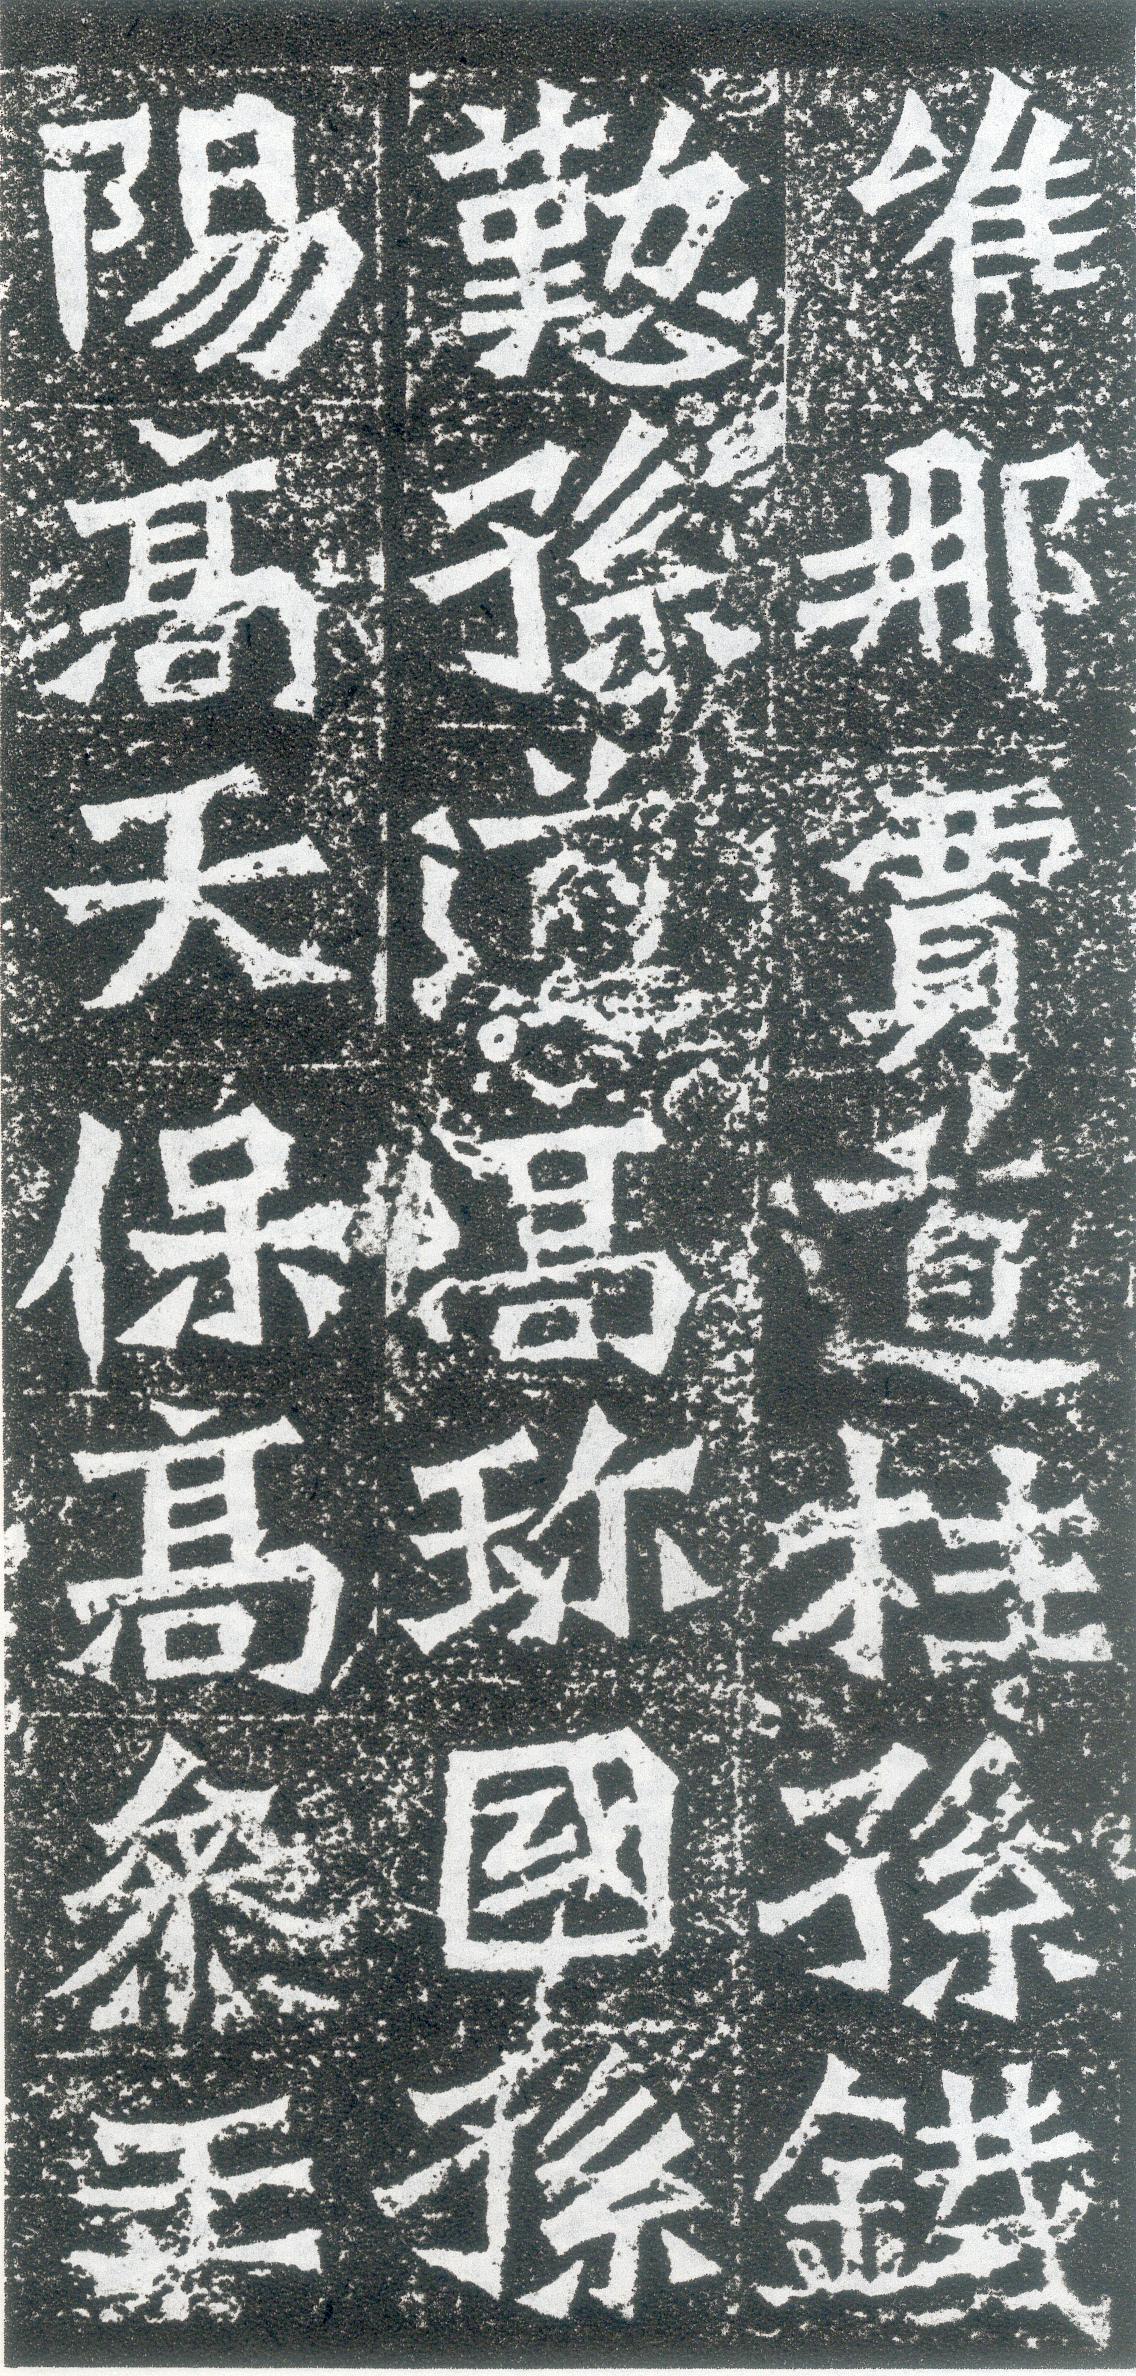 唯那賈直柱孫鐵
懃孫高珎國孫
陽高天保高王